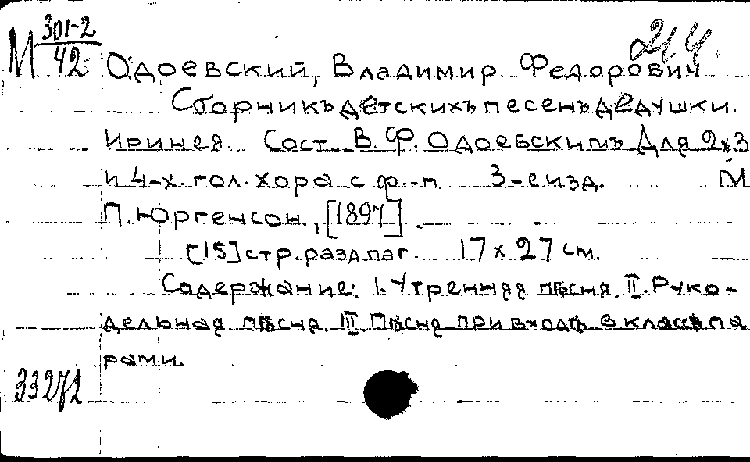 М 301-2
42
Одоевский, Владимир Федорович
Сборникъ детскихъ песенъ дедушки
Иринея. Сост. В.Ф. Одоевскимъ Для 2х3
и 4-х гол. хора с ф-п 3-е изд. М
П. Юргенсон, [1897].
[15] стр. разд. паг. 17 х 27 см.
Содержание: I. Утренняя пѣсня. II. Руко-
дельная пѣсня. III. Пѣсня при входѣ в классъ па
рами.
33272